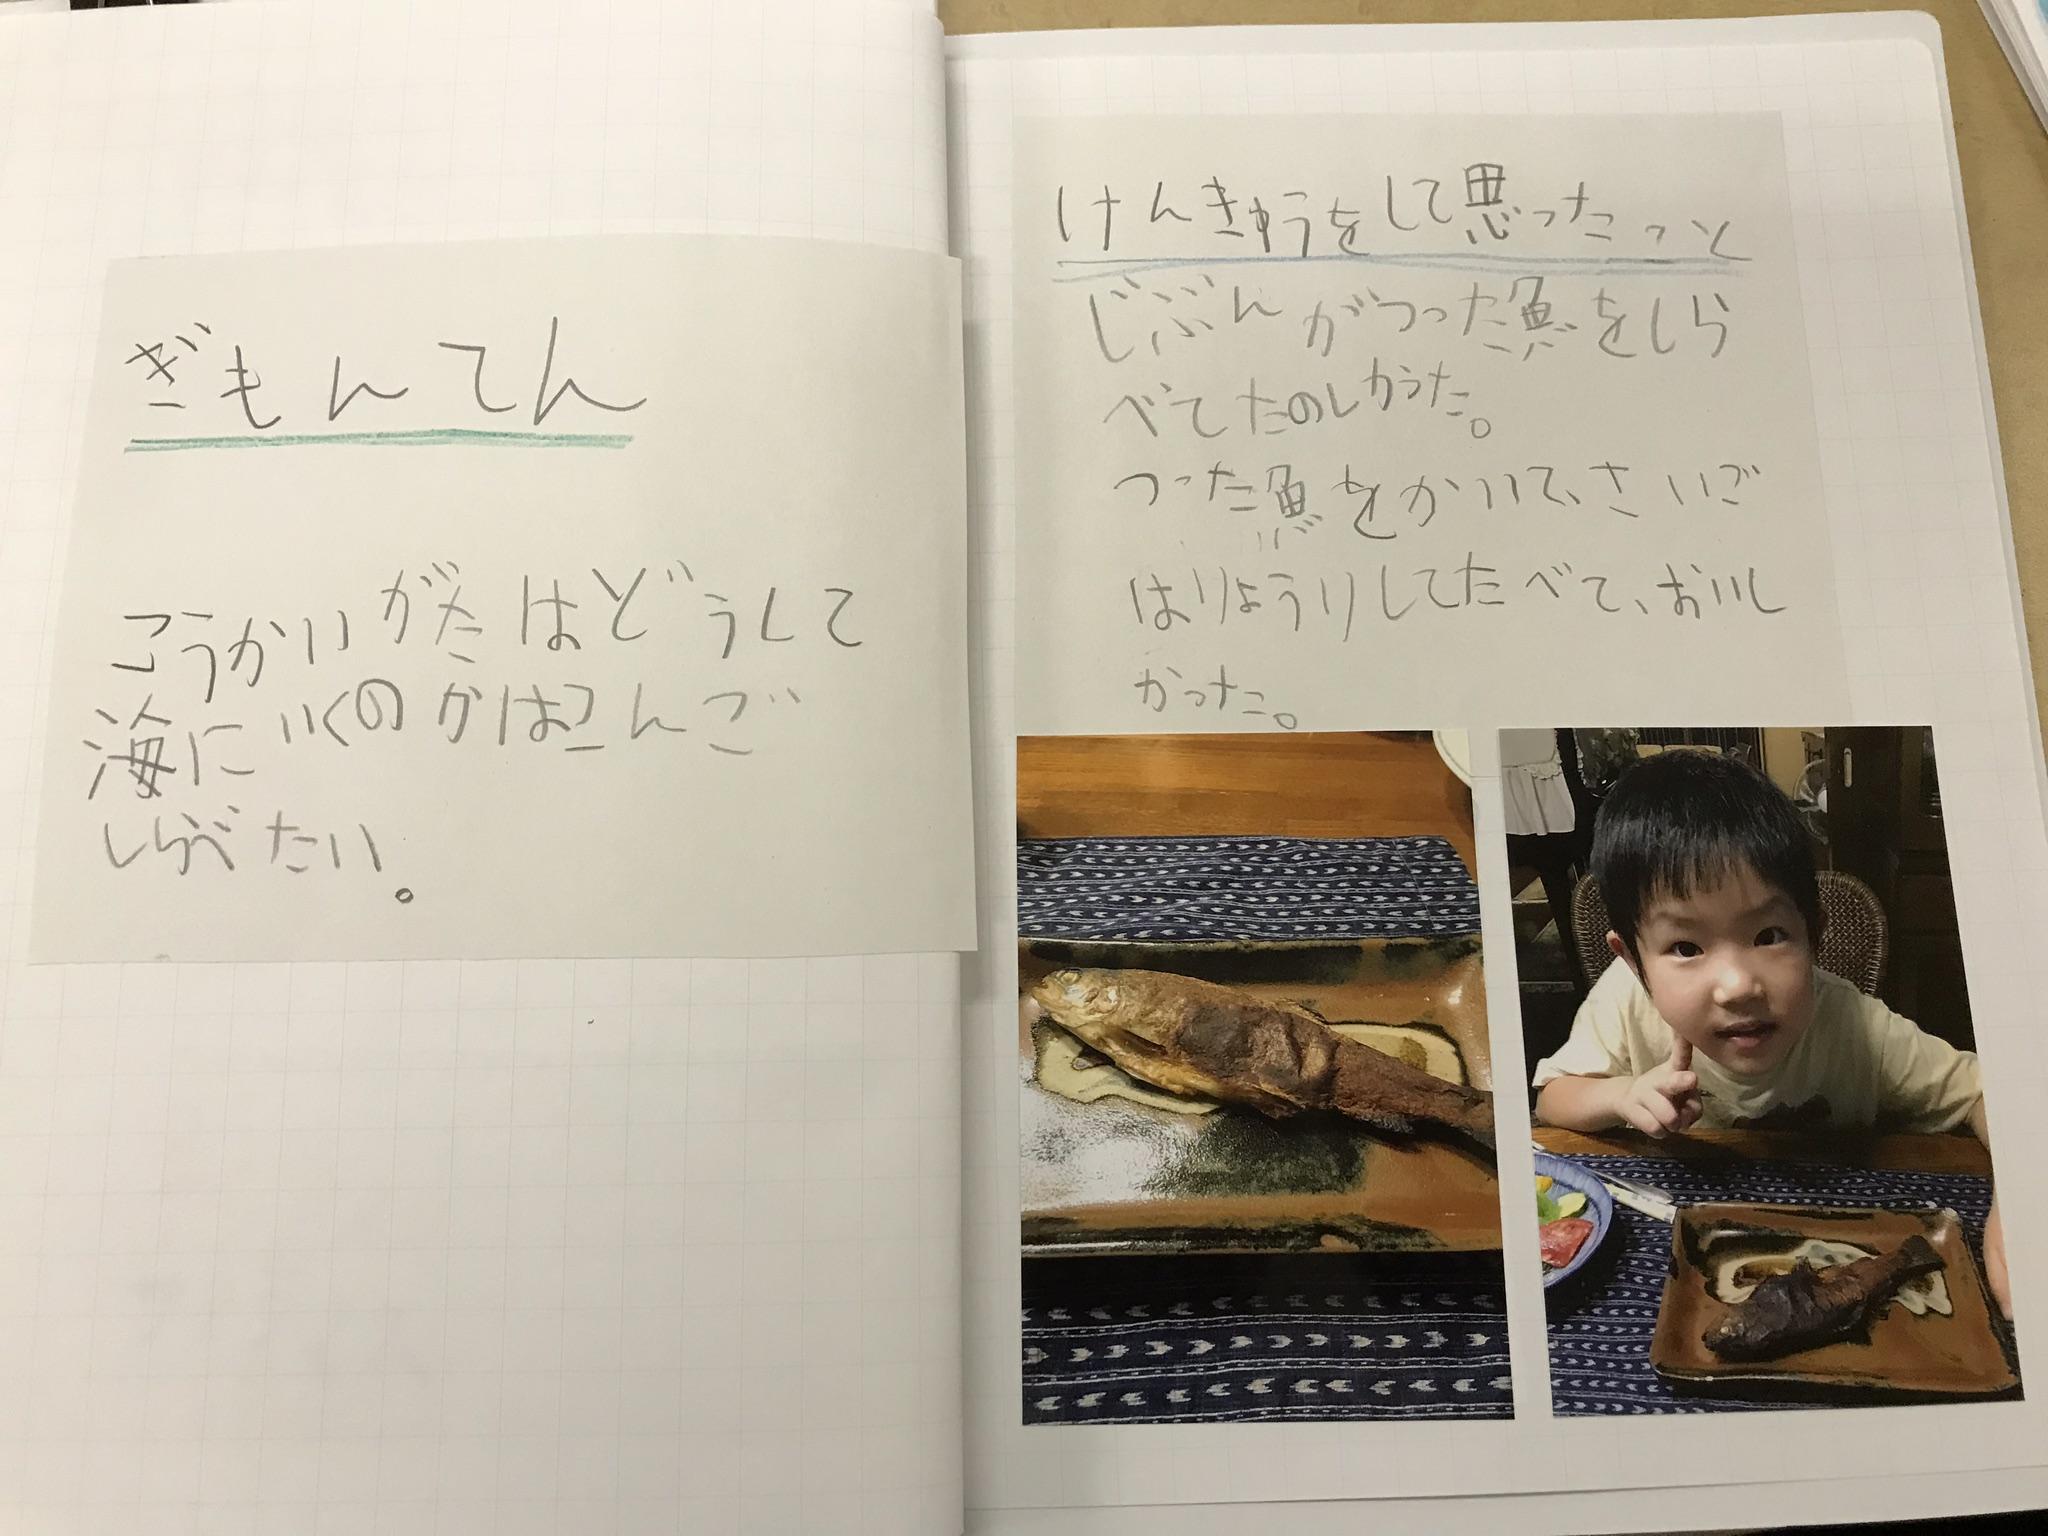 ぎもんてん
こうかいがたはどうして
海にいくのかはこんご
しらべたい。
けんきゅうをして思ったこと
じぶんがつった魚をしら
べてたのしかった。
つった魚をかいて、さいご
はりょうりしてたべて、おいし
かった。